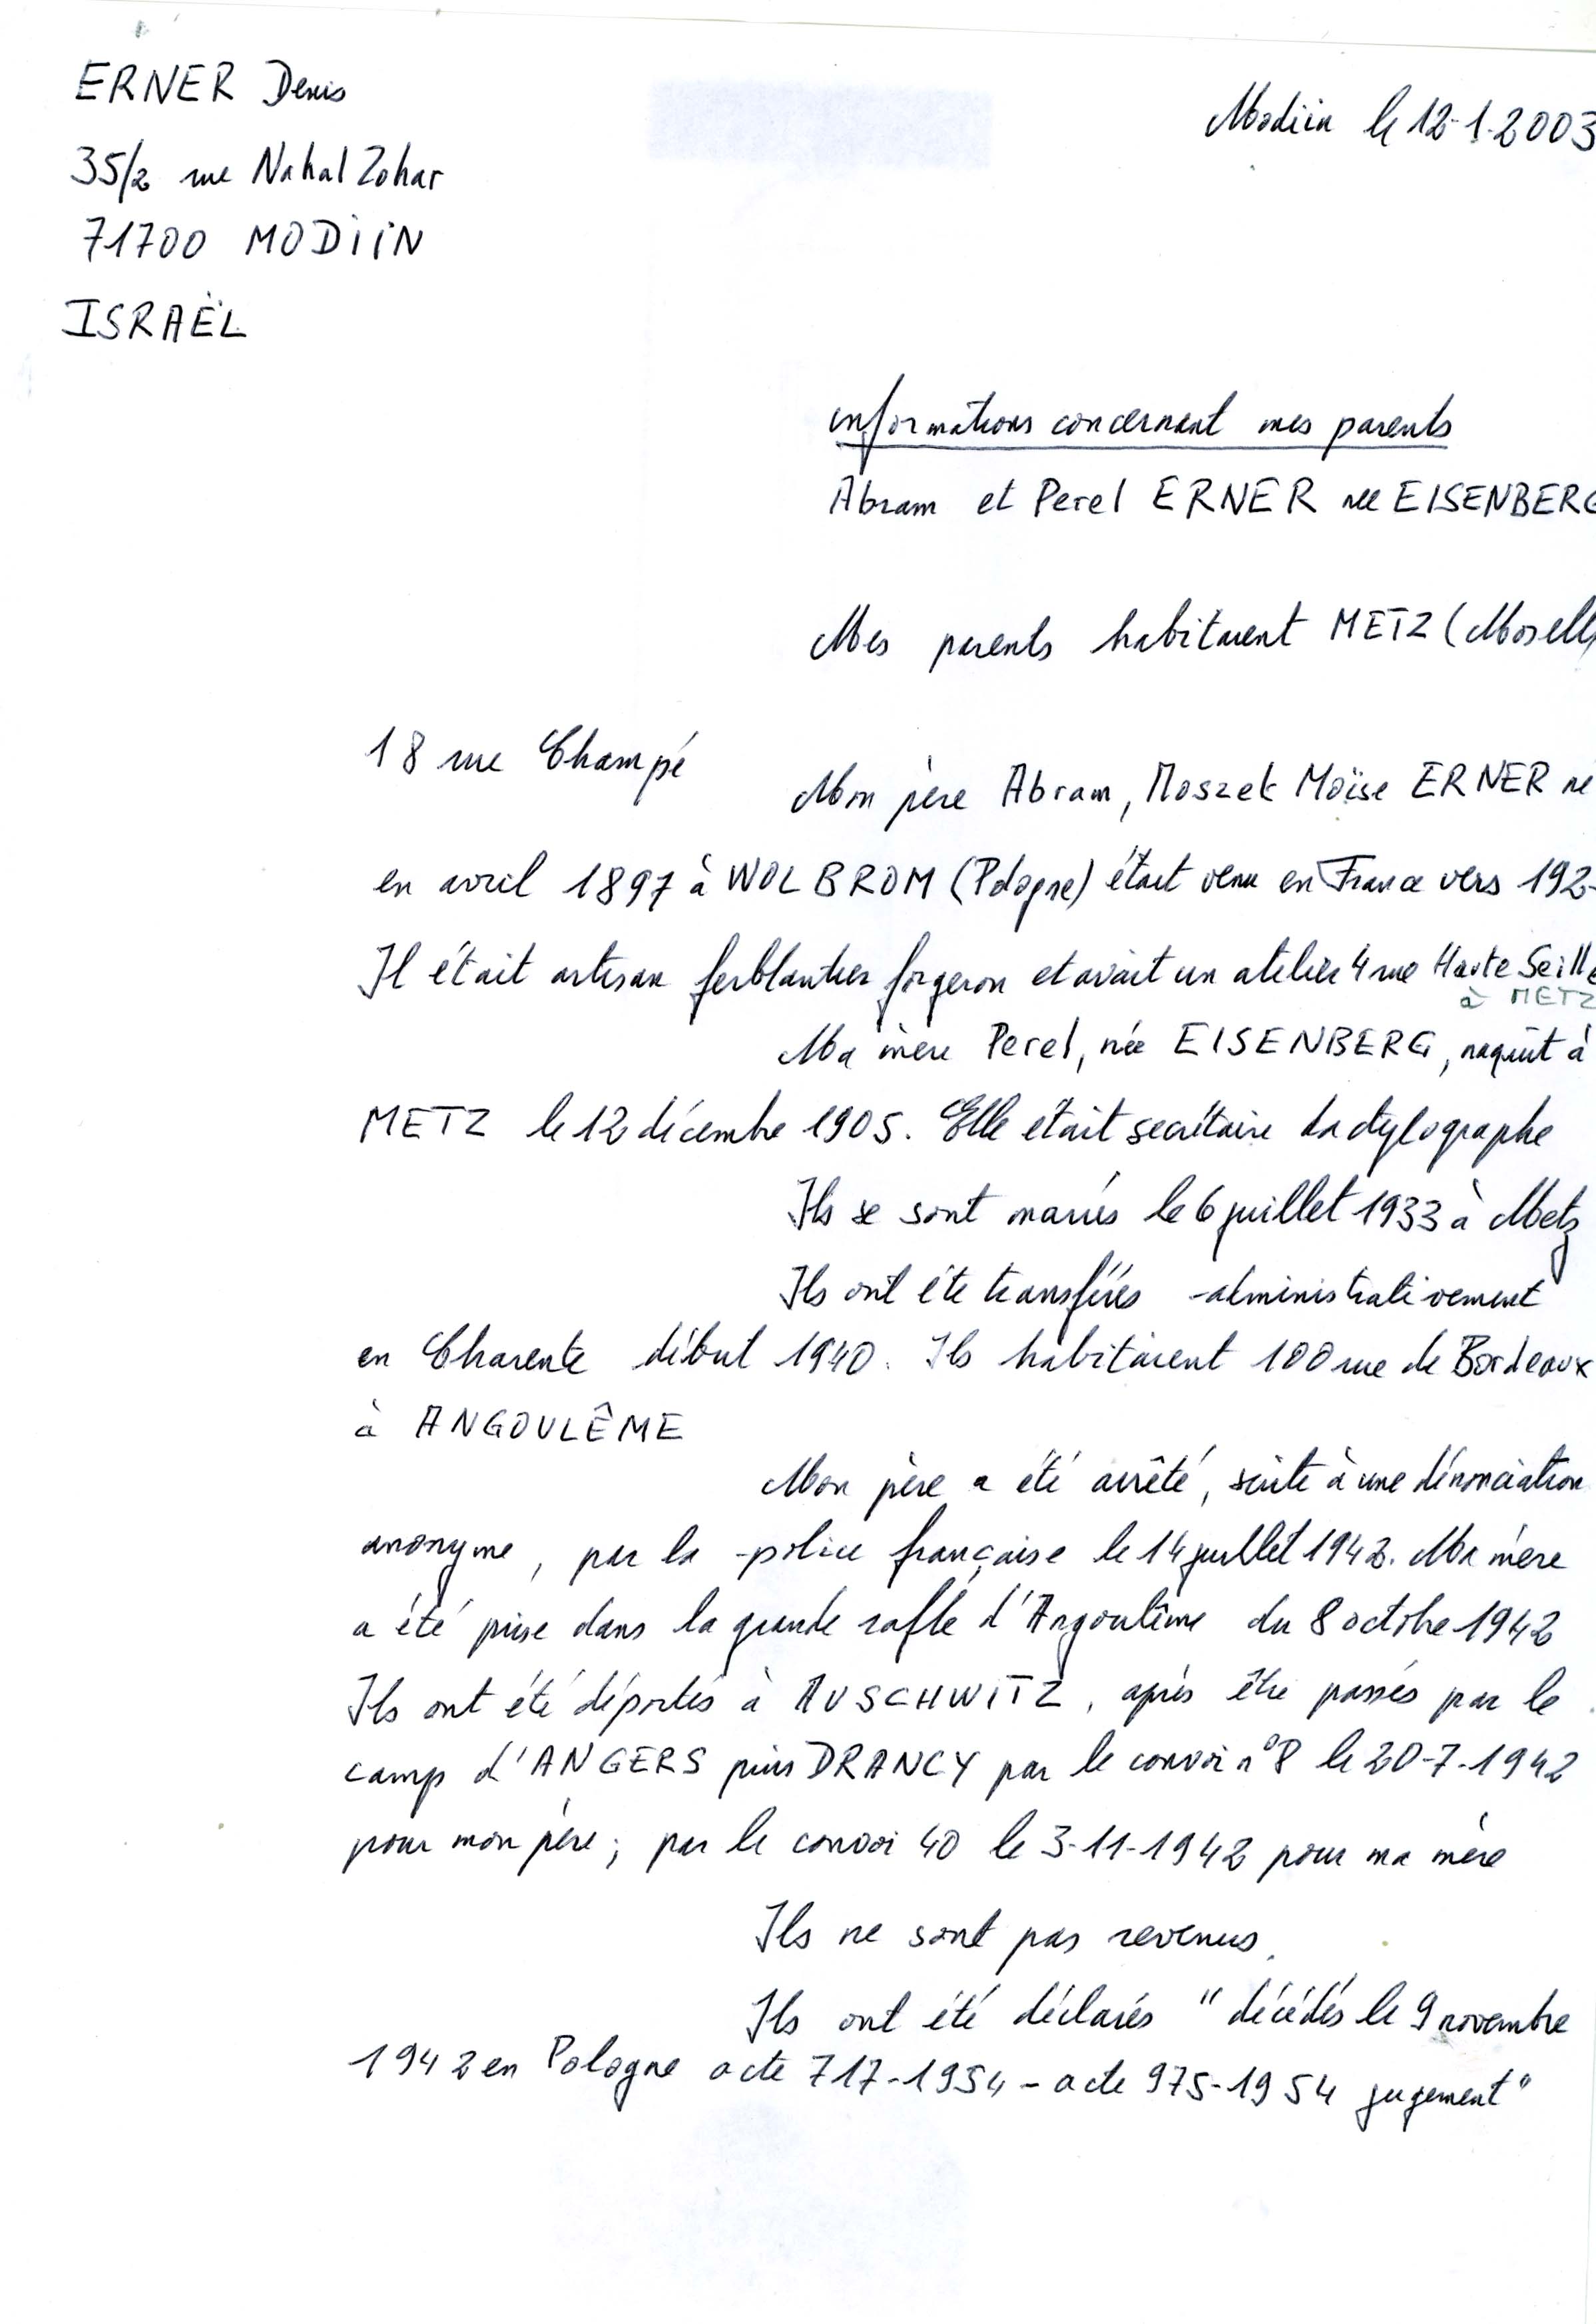 ERNER Denis
Modiin le 12-1-2003
35/2 rue Nahal Zohar
71700 MODIIN
ISRAËL
informations concernant mes parents
Abram et Perel ERNER née EISENBERG
Mes parents habitaient METZ (Moselle
18 rue Champé
Mon père Abram, Moszek Moïse ERNER né
en avril 1897 à WOLBROM (Pologne) était venu en France vers 192
Il était artisan ferblantier forgeron et avait un atelier 4 rue Haute Seille
à METZ
Ma mère Perel, née EISENBERG, naquit à
METZ le 12 décembre 1905. Elle était secrétaire dactylographe
Ils se sont mariés le 6 juillet 1933 à Metz
Ils ont été transférés administrativement
en Charente début 1940. Ils habitaient 100 rue de Bordeaux
à ANGOULÊME
Mon père a été arrêté, suite à une dénonciation
anonyme, par la police française le 14 juillet 1942. Ma mère
a été prise dans la grande rafle d'Angoulême du 8 octobre 1942
Ils ont été déportés à AUSCHWITZ, après être passés par le
camp d'ANGERS puis DRANCY par le convoi n°8 le 20-7-1942
pour mon père; par le convoi 40 le 3-11-1942 pour ma mère
Ils ne sont pas revenus.
Ils ont été déclarés "décédés le 9 novembre
1942 en Pologne acte 717-1954 - acte 975-1954 jugement"